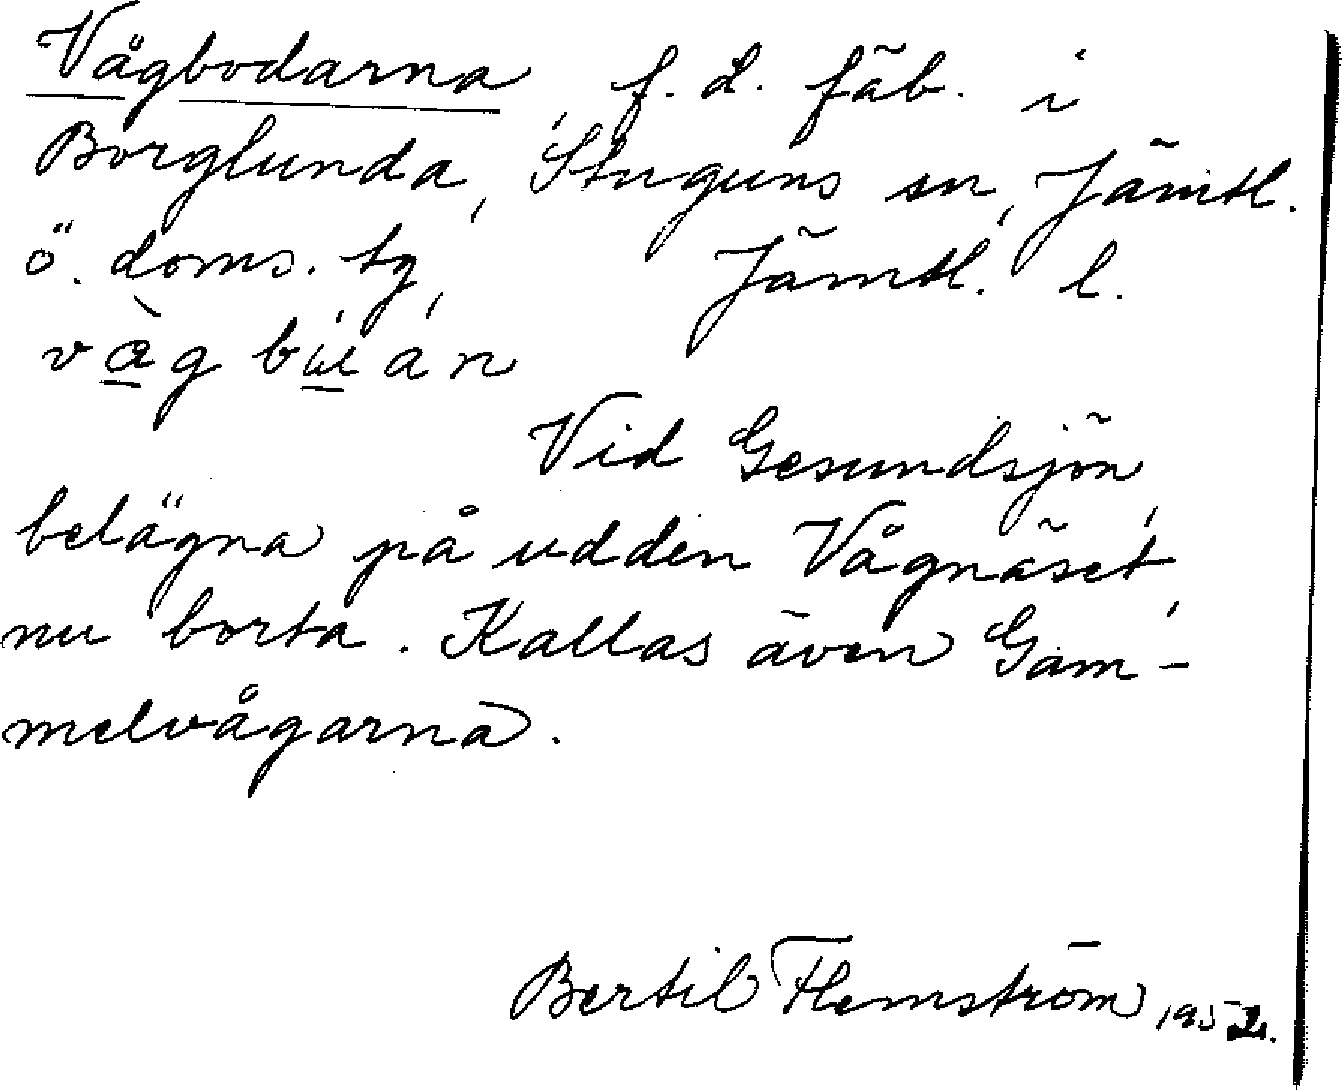 Vågbodarna, f. d. fäb. i
Borglunda, Stuguns sn, Jämtl.
ö. doms. tg, Jämtl. l.
Vid Gesundsjön,
belägna på udden Vågnäset,
nu borta. Kallas även Gam-
melvågarna.
Bertil Flemström 1952.